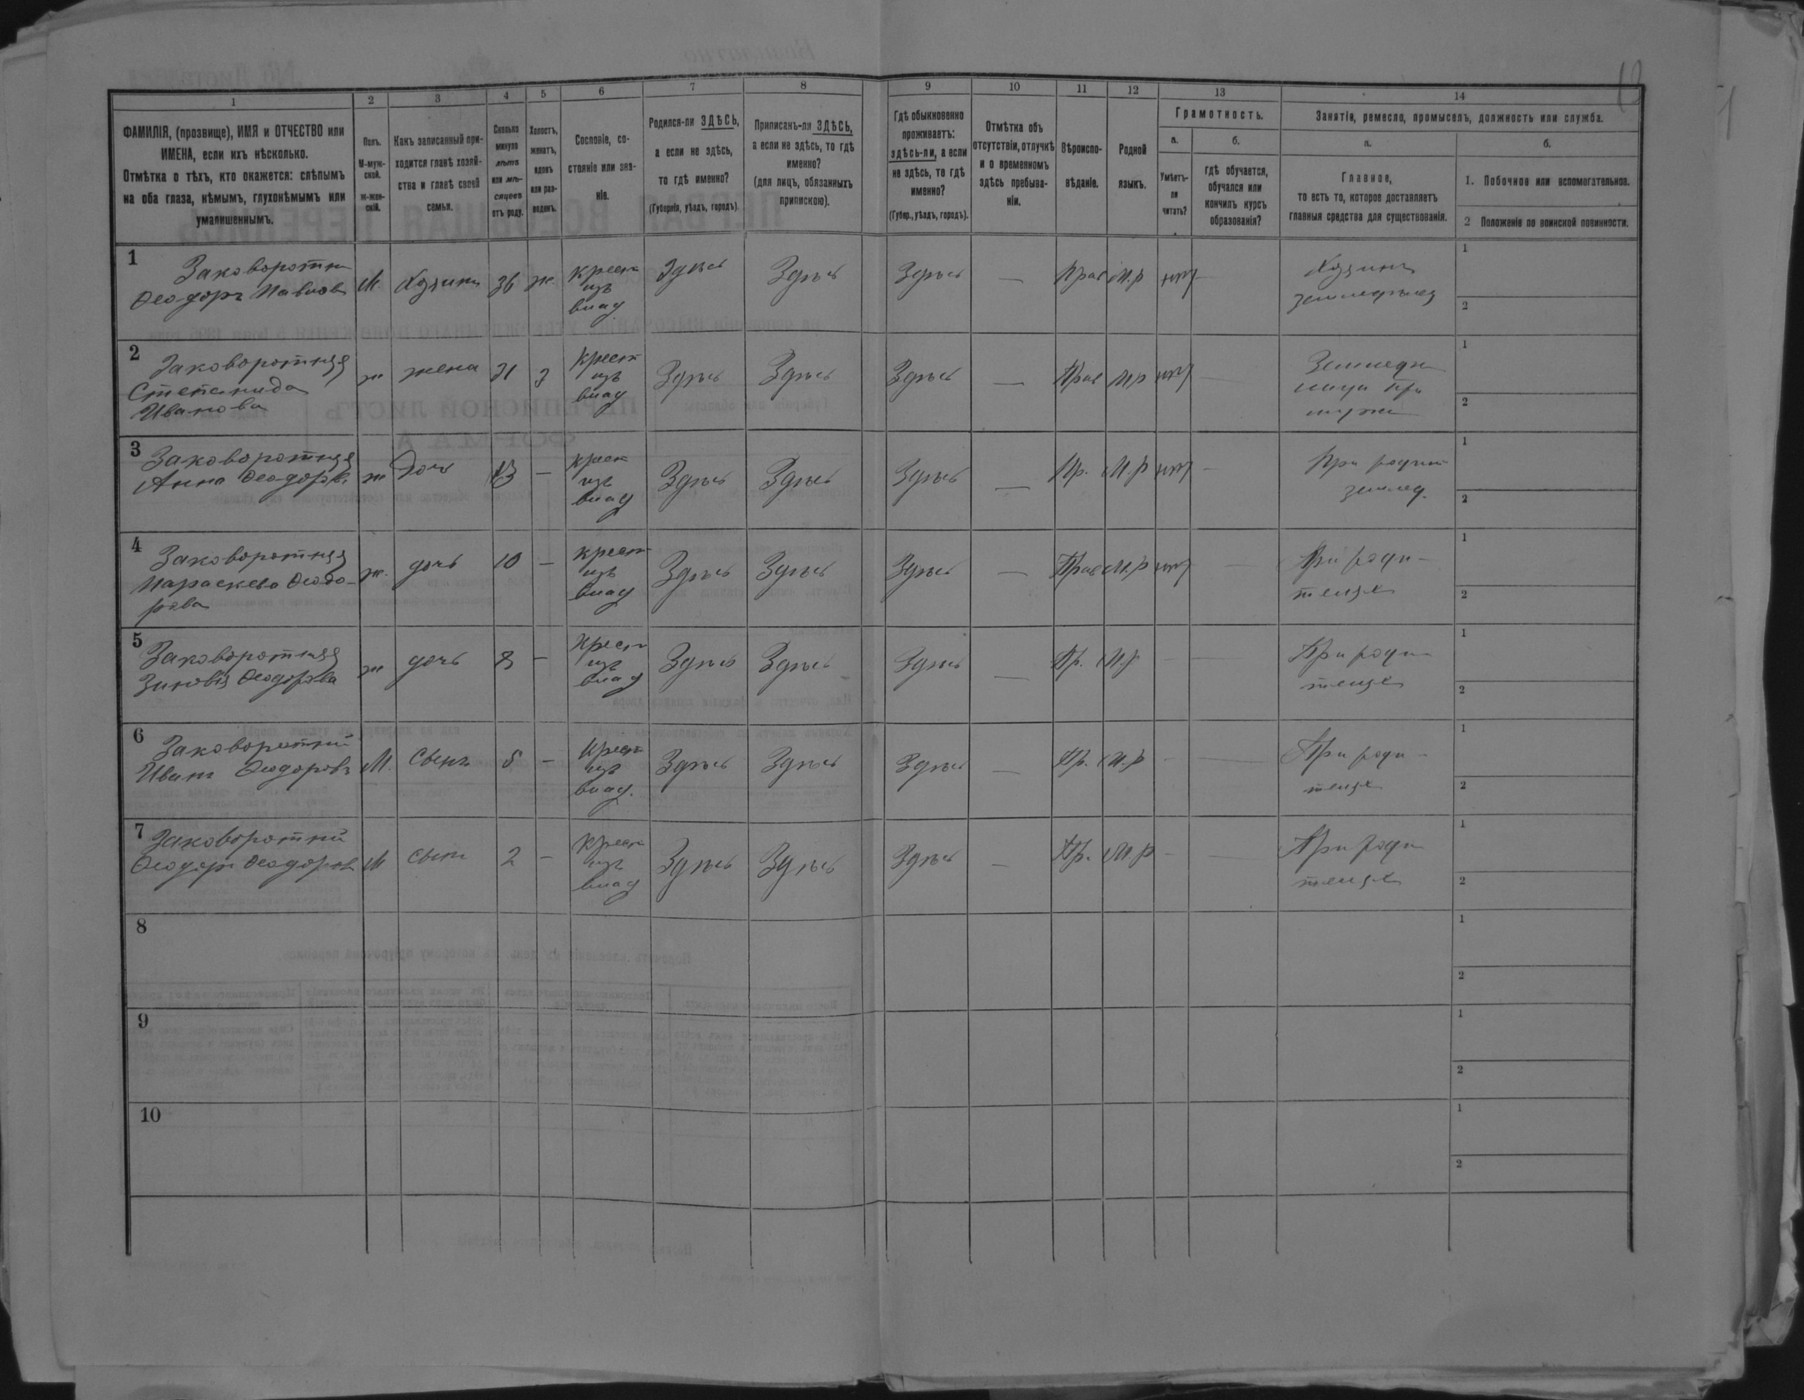 13
1 2 3 4 5 6 7 8 9 10 11 12 13 14
ФАМИЛІЯ, (прозвище), ИМЯ и ОТЧЕСТВО или
ИМЕНА, если ихъ нѣсколько.
Отмѣтка о тѣхъ, кто окажется: слѣпымъ
на оба глаза, нѣмымъ, глухонѣмымъ или
умалишеннымъ.
Полъ.
М-муж-
ской.
Ж-жен-
скій.
Какъ записанный при-
ходится главѣ хозяй-
ства и главѣ своей
семьи.
Сколько
минуло
лѣтъ
или мѣ-
сяцевъ
отъ роду.
Холостъ,
женатъ,
вдовъ
или раз-
веденъ.
Сословіе, со-
стояніе или зва-
ніе.
Родился-ли ЗДѢСЬ,
а если не здѣсь,
то гдѣ именно?
(Губернія, уѣздъ, городъ).
Приписанъ-ли ЗДѢСЬ,
а если не здѣсь, то гдѣ
именно?
(для лицъ, обязанныхъ
припискою).
Гдѣ обыкновенно
проживаетъ:
здѣсь-ли, а если
не здѣсь, то гдѣ
именно?
(Губер., уѣздъ, городъ).
Отмѣтка объ
отсутствіи, отлучкѣ
и о временномъ
здѣсь пребыва-
ніи.
Вѣроиспо-
вѣданіе.
Родной
языкъ.
Грамотность.
а.
Умѣетъ-
ли
читать?
б.
гдѣ обучается,
обучался или
кончилъ курсъ
образованія?
Занятіе, ремесло, промыселъ, должность или служба.
а.
Главное,
то есть то, которое доставляетъ
главныя средства для существованія.
б.
1. Побочное или вспомогательное.
2 Положеніе по воинской повинности.
1
Заковоротн
Ѳеодоръ Павлов
М
Хозяинъ
36
ж
крест
изъ
влад
Здѣсь
Здѣсь
Здѣсь
—
Прав
М.р
нѣт
Хозяинъ
земледѣлец
1
2
2
Заковоротняя
Степанида
Иванова
ж
жена
31
з
крест
изъ
влад
Здѣсь
Здѣсь
Здѣсь
—
Прав
М.р
нѣт
при
мужи
1
2
3
Заковоротняя
Анна Ѳеодоро.
ж
Дочь
13
—
крест
изъ
влад
Здѣсь
Здѣсь
Здѣсь
—
Пр.
М.р
нѣт
При родит
землед.
1
2
4
Заковоротняя
Параскева Ѳеодо-
рова
ж.
дочь
10
—
крест
изъ
влад
Здѣсь
Здѣсь
Здѣсь
—
Прав
М.р
нѣт
При роди-
телях
1
2
5
Заковоротняя
Зиновія Ѳеодорова
ж
дочь
8
—
крест
изъ
влад
Здѣсь
Здѣсь
Здѣсь
—
Пр.
М.р
При роди-
телях
1
2
6
Заковоротній
Иванъ Ѳеодоровъ
М.
Сынъ
5
—
Крест
изъ
влад.
Здѣсь
Здѣсь
Здѣсь
—
Пр.
М.р
При роди-
телях
1
2
7
Заковоротній
Ѳеодоръ Ѳеодоров
М
сынъ
2
—
Крест
изъ
влад
Здѣсь
Здѣсь
Здѣсь
—
Пр.
М.р
При роди-
телях
1
2
8
1
2
9
1
2
10
1
2